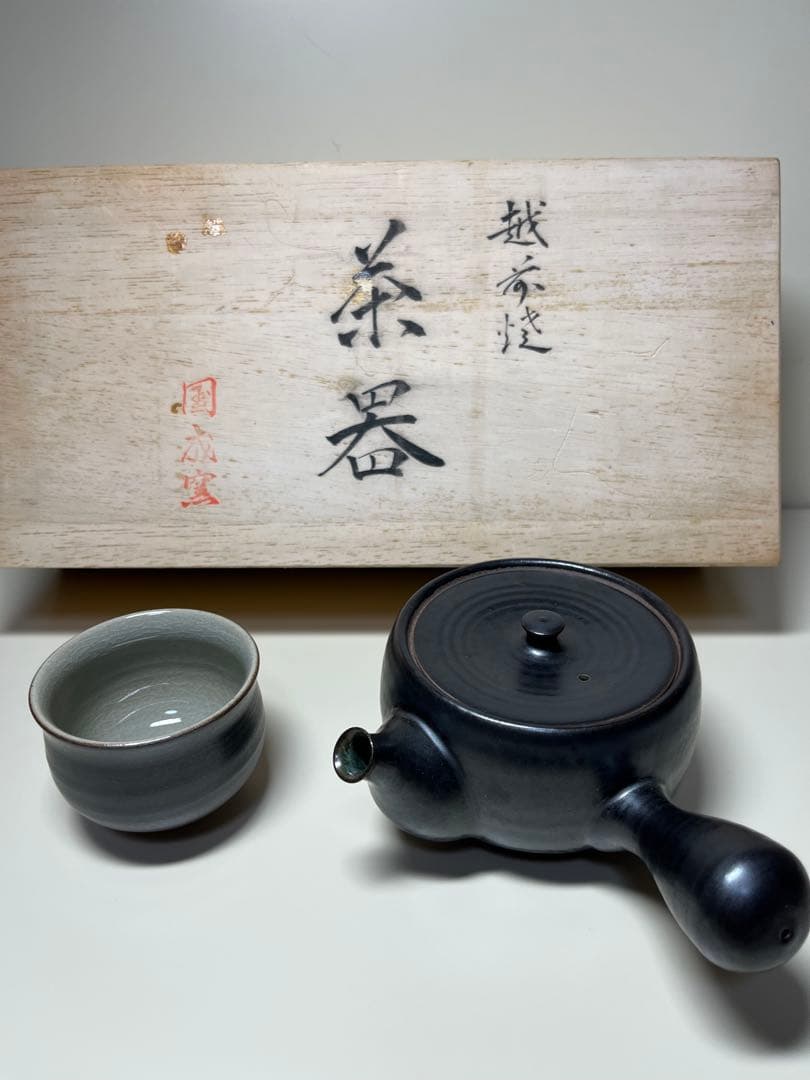 越前焼
茶器
国成窯